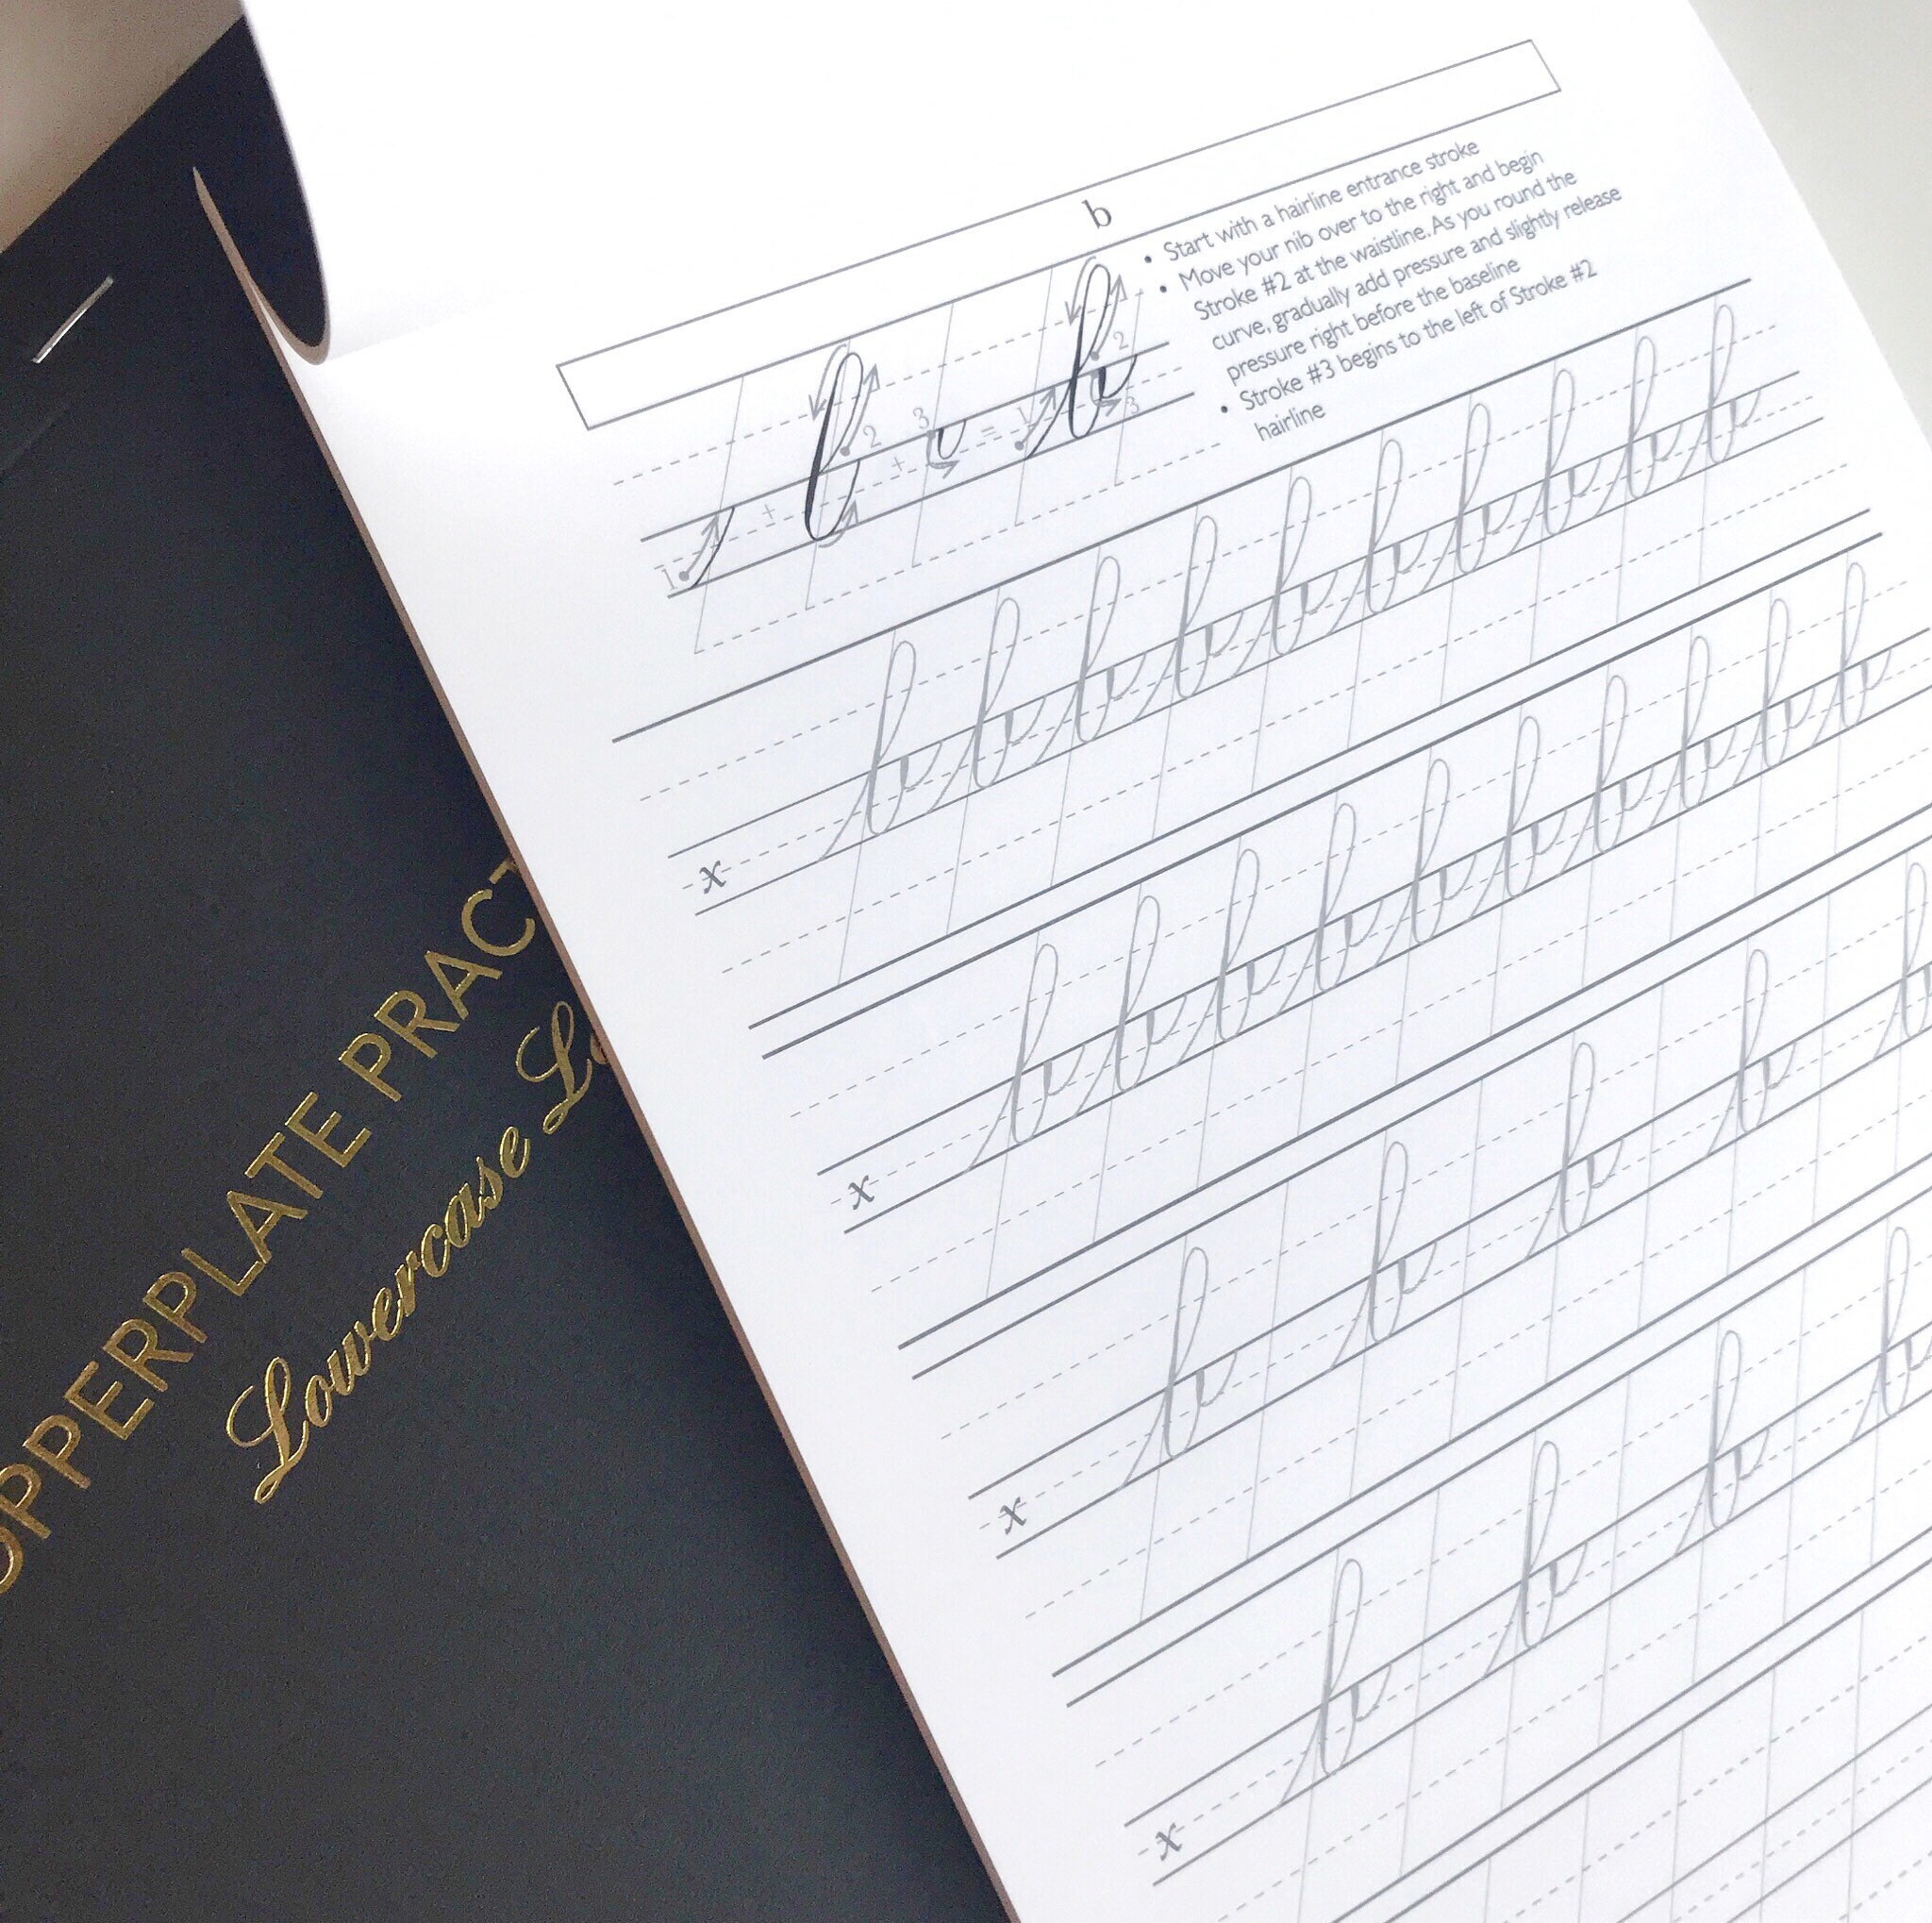 b
1 + 2 + 3 = 1 b 2 3
• Start with a hairline entrance stroke
• Move your nib over to the right and begin
Stroke #2 at the waistline. As you round the
curve, gradually add pressure and slightly release
pressure right before the baseline
• Stroke #3 begins to the left of Stroke #2
hairline
x b b b b b b b b b b
x b b b b b b b b b b
x b b b b b
x b b b b
OPPERPLATE PRACT
Lowercase